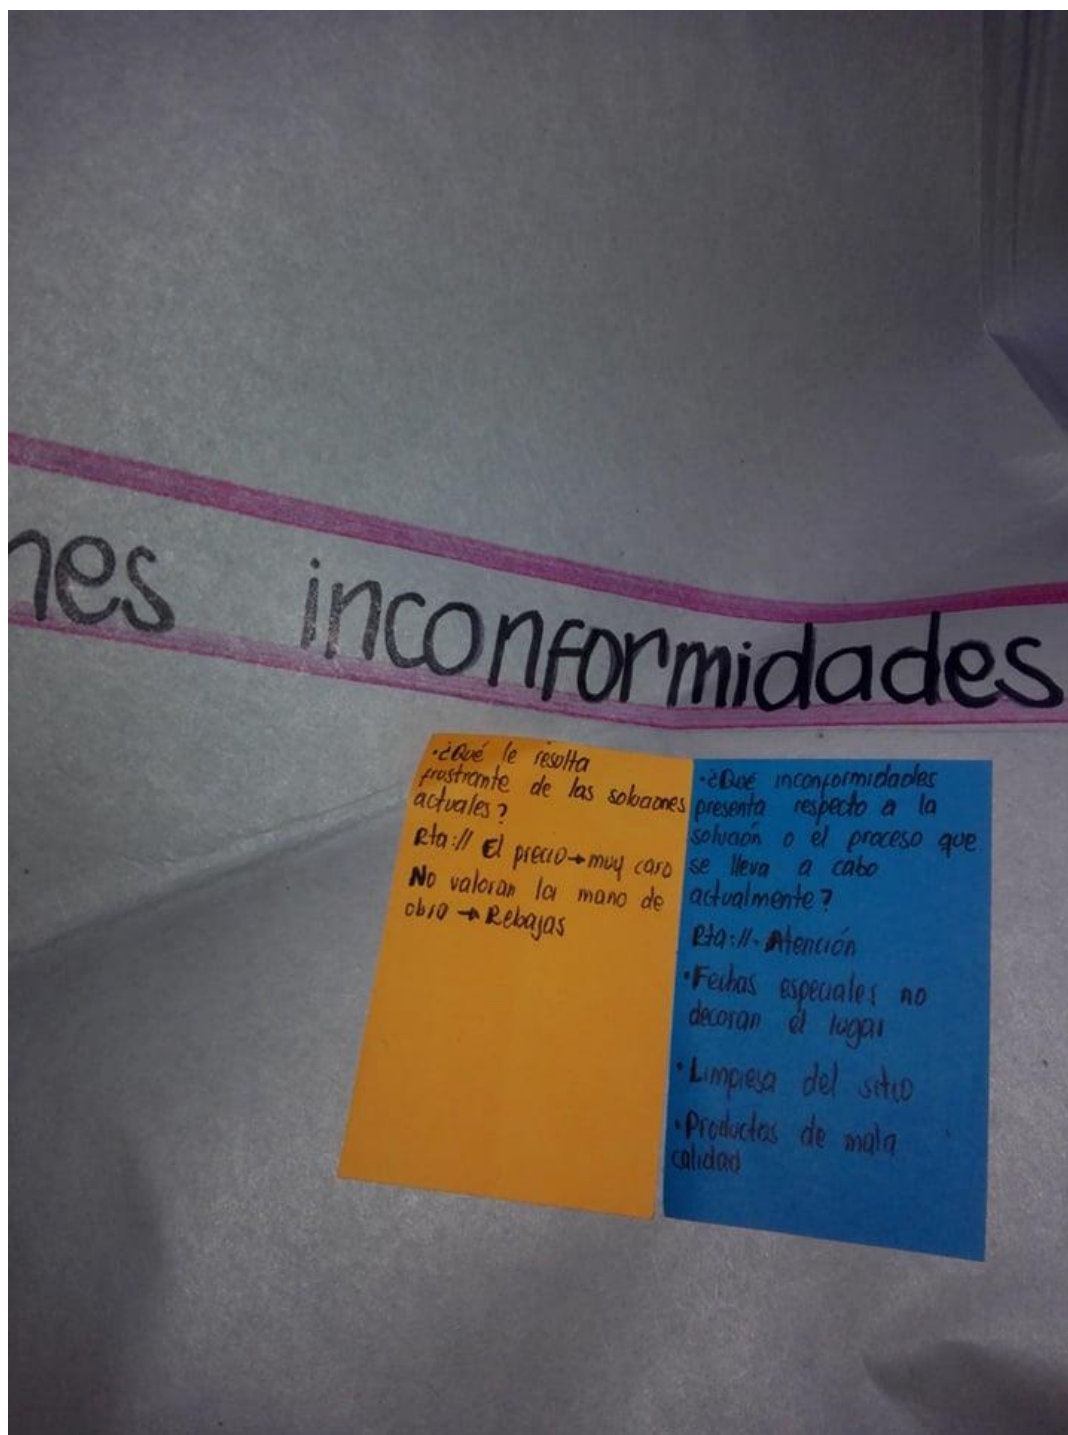 nes inconformidades
·¿Qué le resulta
frustrante de las soluciones
actuales?
Rta:// El precio→muy caro
No valoran la mano de
obra → Rebajas
·¿Qué inconformidades
presenta respecto a la
solución o el proceso que
se lleva a cabo
actualmente?
Rta://· Atención
·Fechas especiales no
decoran el lugar
·Limpiesa del sitio
·Productos de mala
calidad